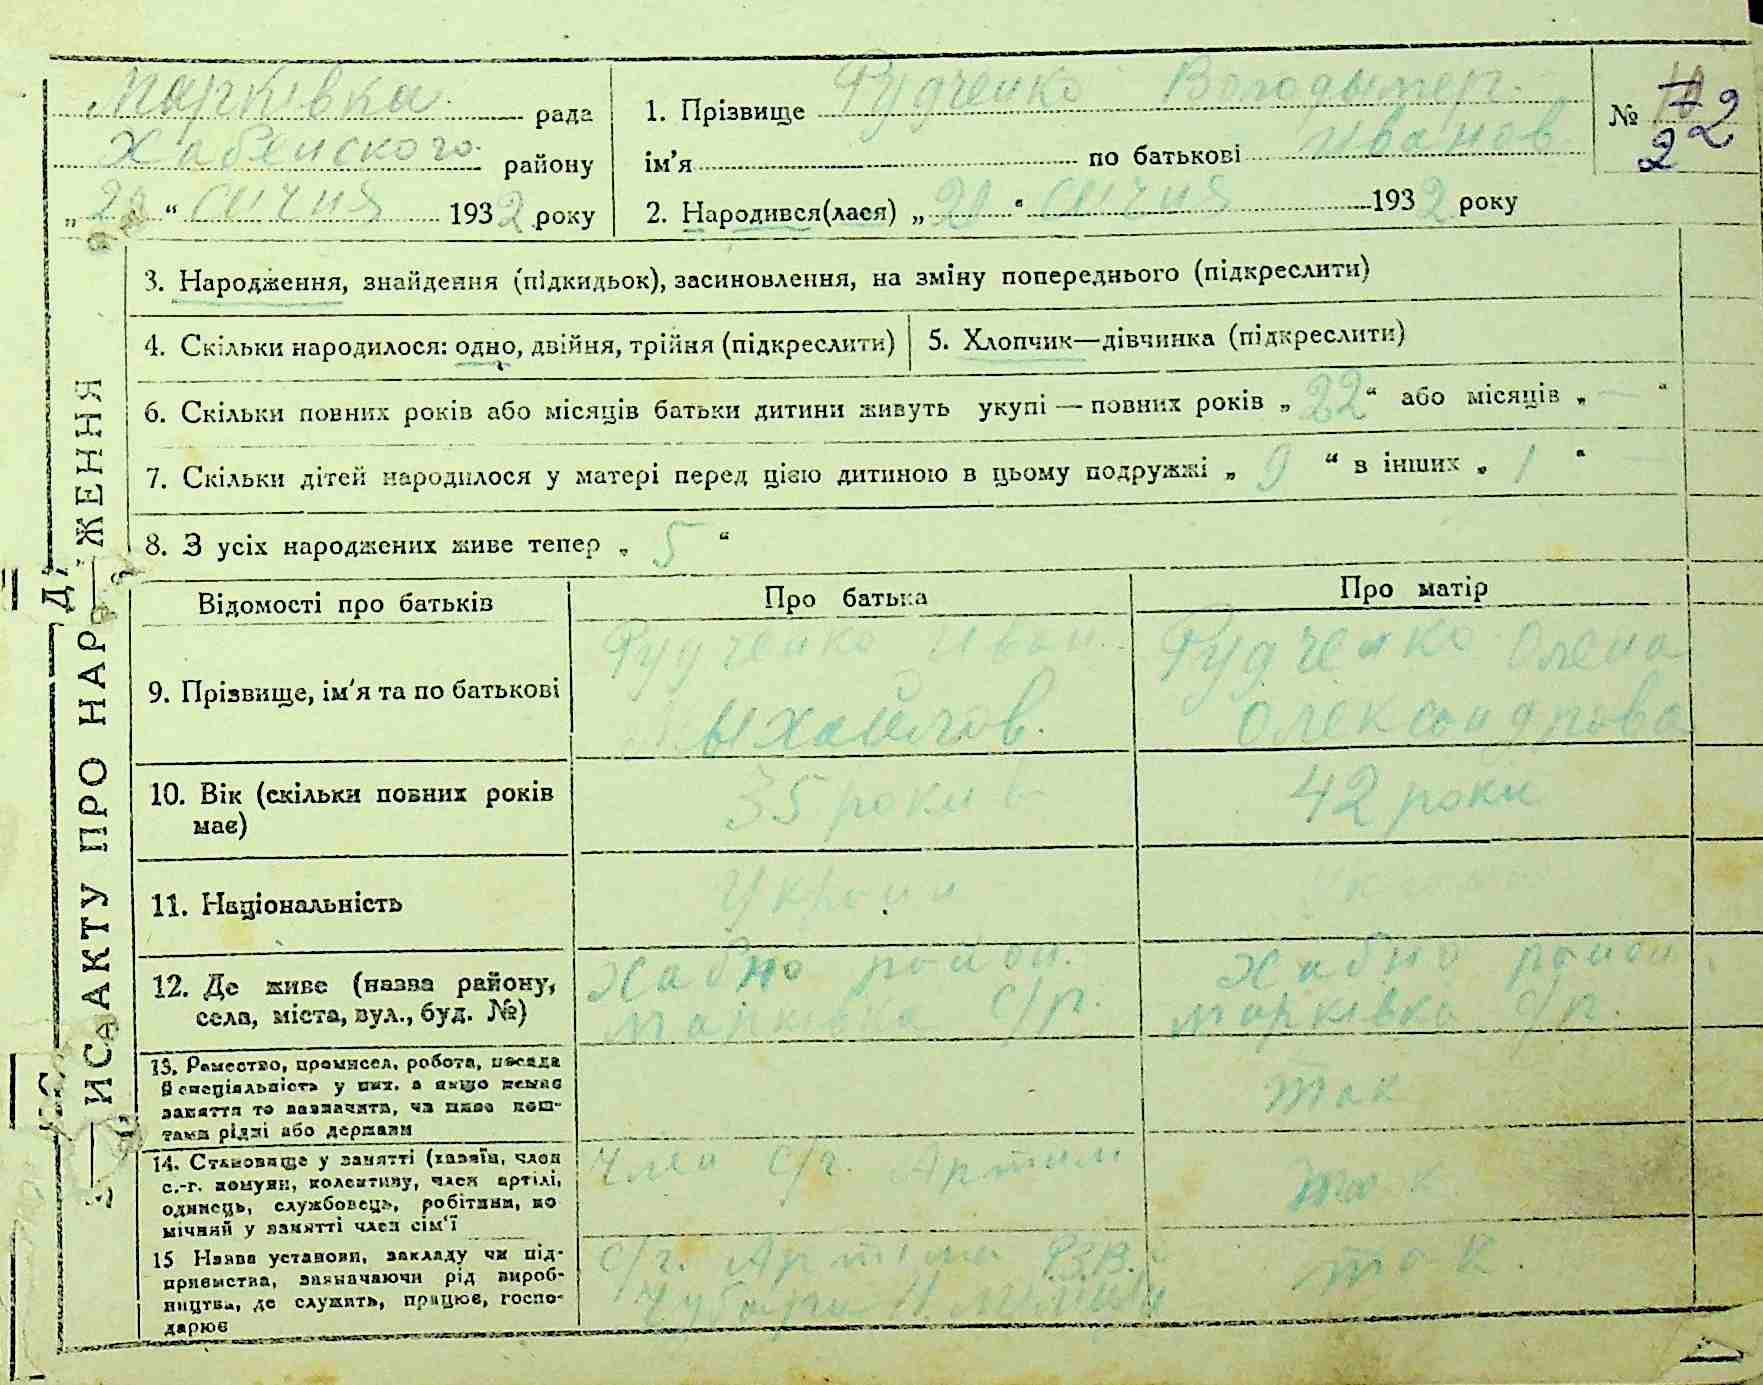 Марківка рада
Хабенского району
„ 22 “ січня 1932 року
1. Прізвище Рудченко Володымер.
ім'я по батькові Иванов
2. Народився(лася) „ 20 “ січня 1932 року
№ 22
3. Народження, знайдення (підкидьок), засиновлення, на зміну попереднього (підкреслити)
4. Скільки народилося: одно, двійня, трійня (підкреслити)
5. Хлопчик—дівчинка (підкреслити)
6. Скільки повних років або місяців батьки дитини живуть укупі — повних років „ 22 “ або місяців „ — “
7. Скільки дітей народилося у матері перед цією дитиною в цьому подружжі „ 9 “ в інших „ 1 “
8. З усіх народжених живе тепер „ 5 “
ИС АКТУ ПРО НАР ЖЕННЯ
Відомості про батьків
Про батька
Про матір
9. Прізвище, ім'я та по батькові
Рудченко Иван
Мыхайлов.
Рудченко Олена
Олександрова
10. Вік (скільки повних років
має)
35 рокив
42 роки
11. Національність
Украин
12. Де живе (назва району,
села, міста, вул., буд. №)
Хабно район.
Марківка С/р.
Хабно район
Марківка С/р.
13. Ремество, промисел, робота, посада
й спеціяльність у них, а якщо немає
заняття то зазначити, чи живе кош-
тами рідні або держави
так
14. Становище у занятті (хазяїн, член
с.-г. комуни, колективу, член артілі,
одинець, службовець, робітник, по
мічний у занятті член сім'ї
Член С/г. Артили
так
15 Назва установи, закладу чи під-
приємства, зазначаючи рід вироб-
ництва, де служить, працює, госпо-
дарює
С/г. Артиль
Чубаря
так.